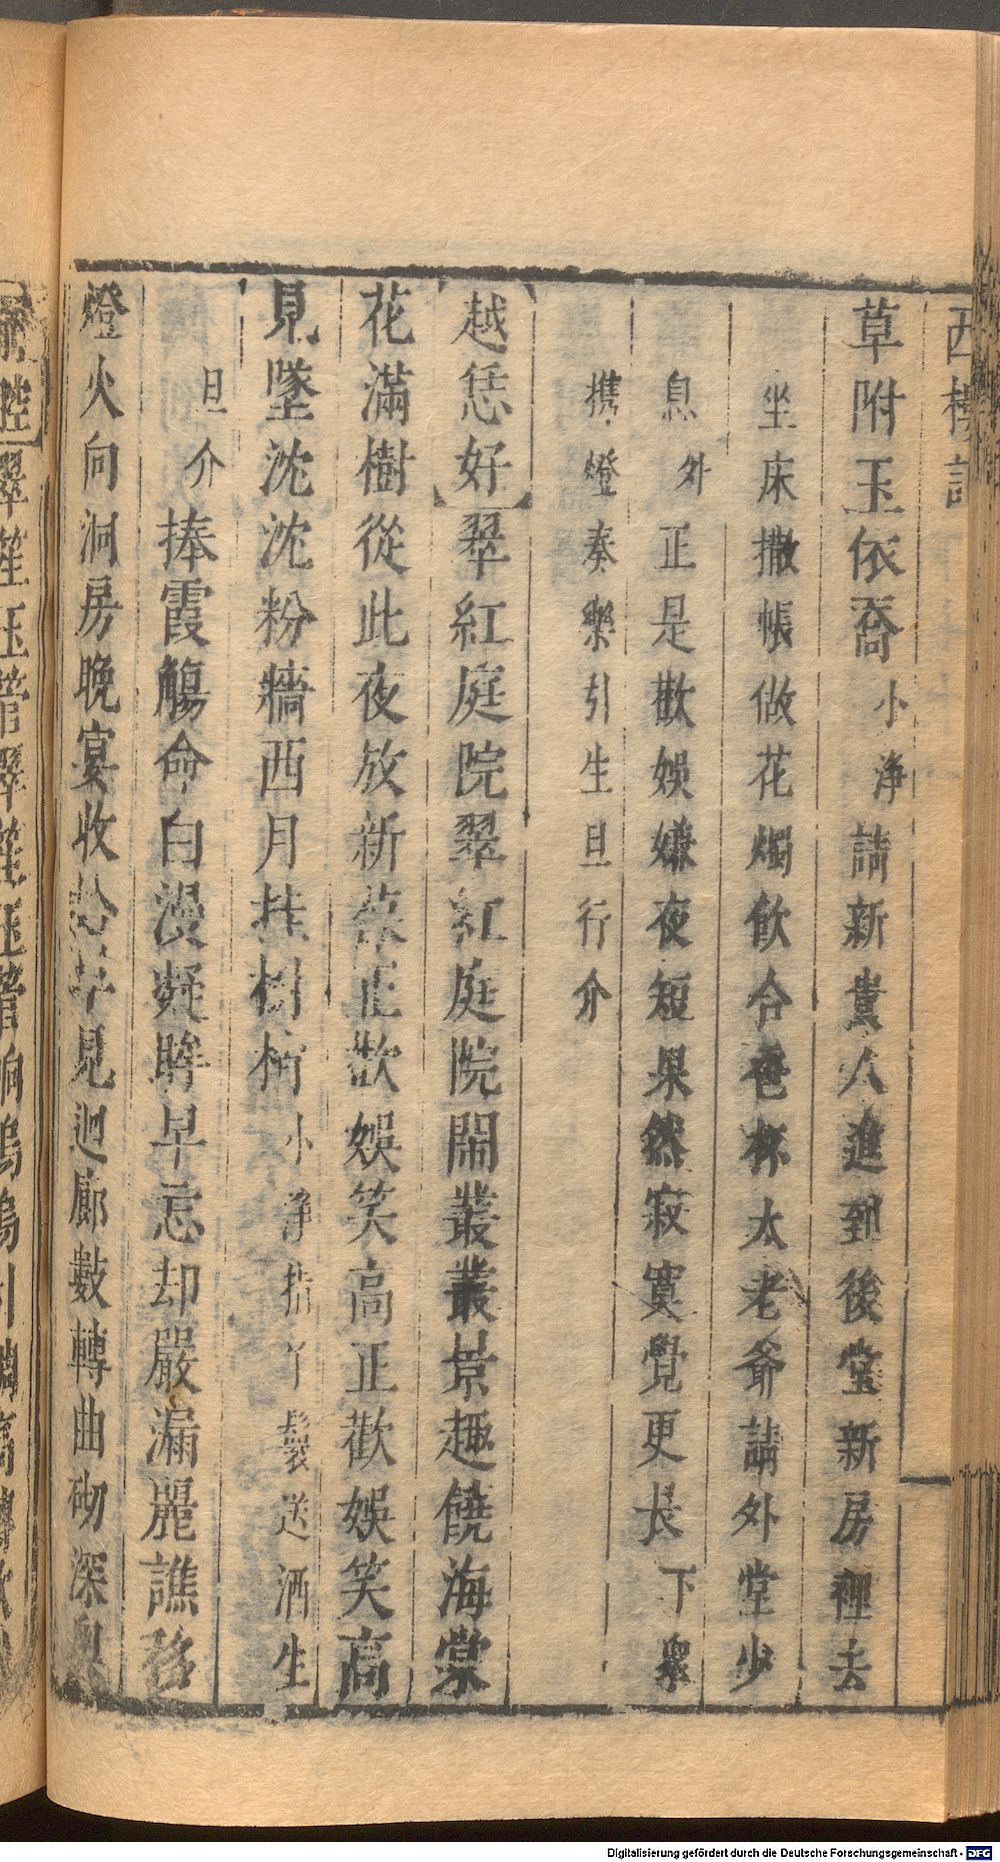 西樓記
草附玉依喬小淨請新貴人進到後堂新房裡去
坐床撒帳做花燭飲合卺杯太老爺請外堂少
息外正是歡娛嫌夜短果然寂寞覺更長下眾
携燈奏樂引生旦行介
【越恁好】翠紅庭院翠紅庭院閙叢叢景趣饒海棠
花滿樹從此夜放新葆正歡娛笑高正歡娛笑高
見墜沈沈粉牆西月挂樹梢小淨指丫鬟送酒生
旦介捧霞觴命白漫凝眸早忘却嚴漏麗譙移
燈火向洞房晚宴收拾早見迴廊數轉曲砌深奥
Digitalisierung gefördert durch die Deutsche Forschungsgemeinschaft - DFG